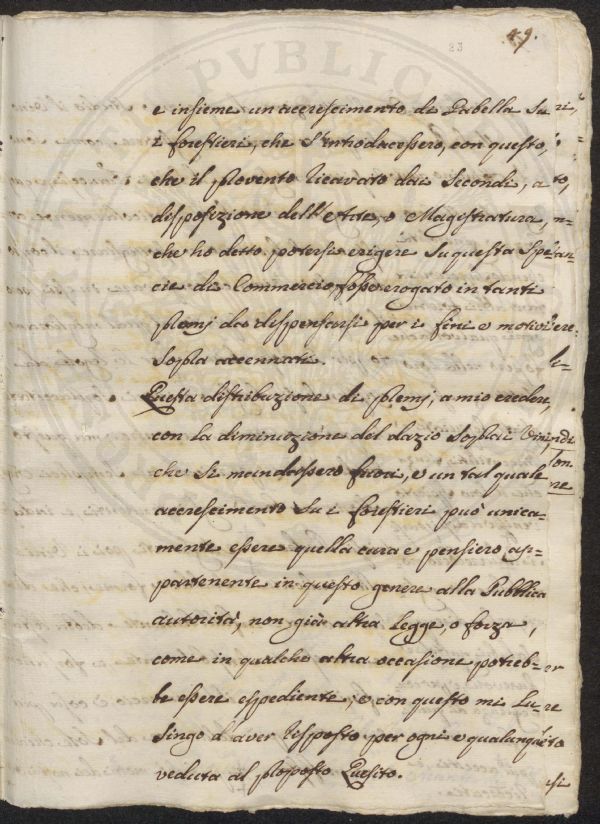 23
49.
e insieme un accrescimento di Gabella su
i forestieri, che s'introducessero, con questo,
che il provento ricavato dai secondi, a
disposizione dell'Arte, o Magistratura,
che ho detto potersi erigere su questa Spe-
cie di Commercio fosse erogato in tanti
premj da dispensarsi per i fini e motivi
sopra accennati.
Questa distribuzione di premj, a mio credere,
con la diminuzione del dazio sopra i Vini,
che si mandassero fuori, e un tal quale
accrescimento su i forestieri può unica-
mente essere quella cura e pensiero ap-
partenente in questo genere alla Pubblica
autorità, non già altra legge, o forza,
come in qualche altra occasione potreb-
be essere espediente; e con questo mi Lu-
singo d'aver risposto per ogni e qualunque
veduta al proposto Quesito.